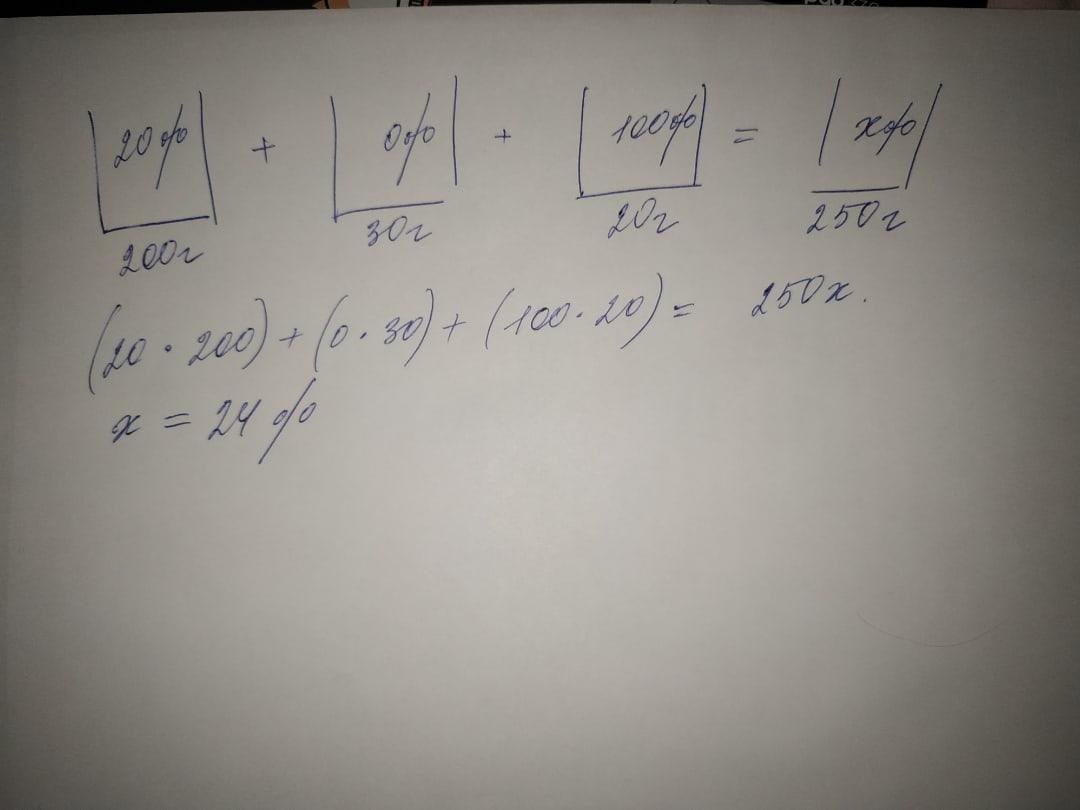 20% + 0% + 100% = x%
200г 30г 20г 250г
(20 · 200) + (0 · 30) + (100 · 20) = 250x.
x = 24%